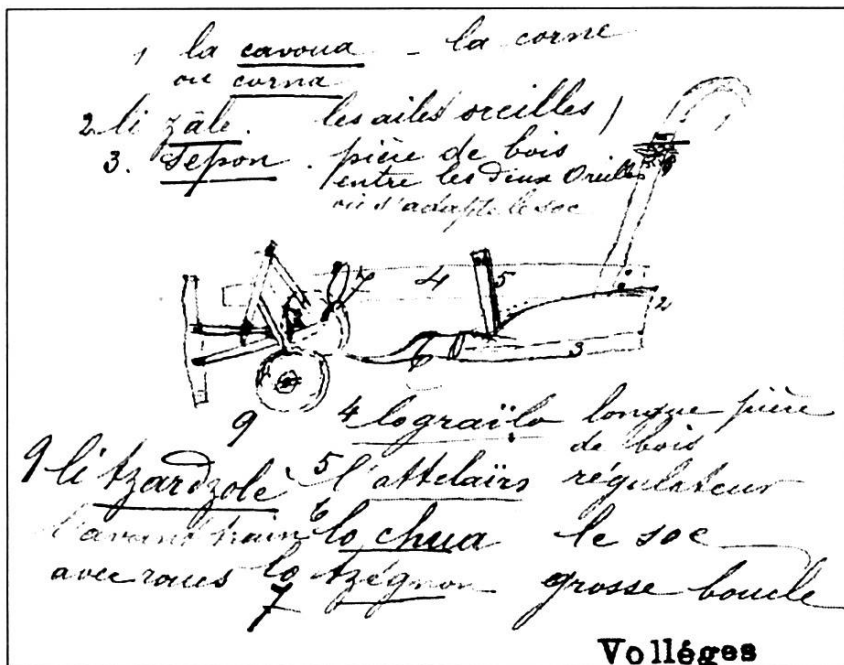 1 la cavoua - la corne
ou corna
2 li zâle. les ailes oreilles)
3. Sepon. pièce de bois
entre les deux Oreilles
où s'adapte le soc
7 4 5
2
6 3
9
4 lo graïlo longue pièce
de bois
9 li tzardzolè 5 l'attelaïrs régulateur
l'avant train 6 lo chua le soc
avec roues lo tzégnon grosse boucle
7
Vollèges